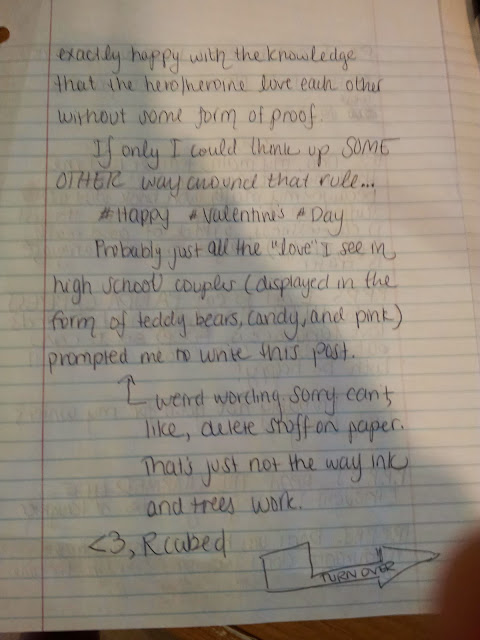 exactly happy with the knowledge
that the hero/heroine love each other
without some form of proof.
If only I could think up SOME
OTHER way around that rule...
#Happy #Valentine's #Day
Probably just all the "love" I see in
high school couples (displayed in the
form of teddy bears, candy, and pink)
prompted me to write this post.
weird wording sorry can't
like, delete stuff on paper.
That's just not the way ink
and trees work.
<3, Rcubed
TURN OVER